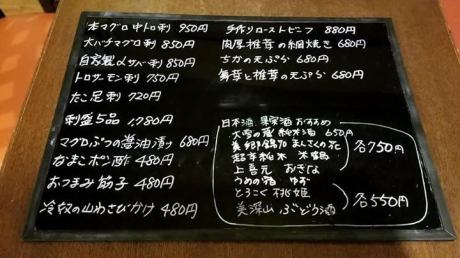 本マグロ中トロ刺 950円
大バチマグロ刺 850円
自家製〆サバ刺 850円
トロサーモン刺 750円
たこ足刺 720円
刺盛5品 1,780円
マグロぶつの醤油漬け 680円
なまこポン酢 480円
おつまみ筋子 480円
冷奴の山わさびかけ 480円
手作りローストビーフ 880円
肉厚椎茸の網焼き 680円
ちかの天ぷら 680円
舞茸と椎茸の天ぷら 680円
日本酒、果実酒 おすすめ
大雪の蔵 純米酒 650円
美郷錦 まんさくの花
超辛純米 米鶴
上喜元 おきな
各750円
うめの宿 ゆず
とろこく 桃姫
美深山 ぶどう酒
各550円